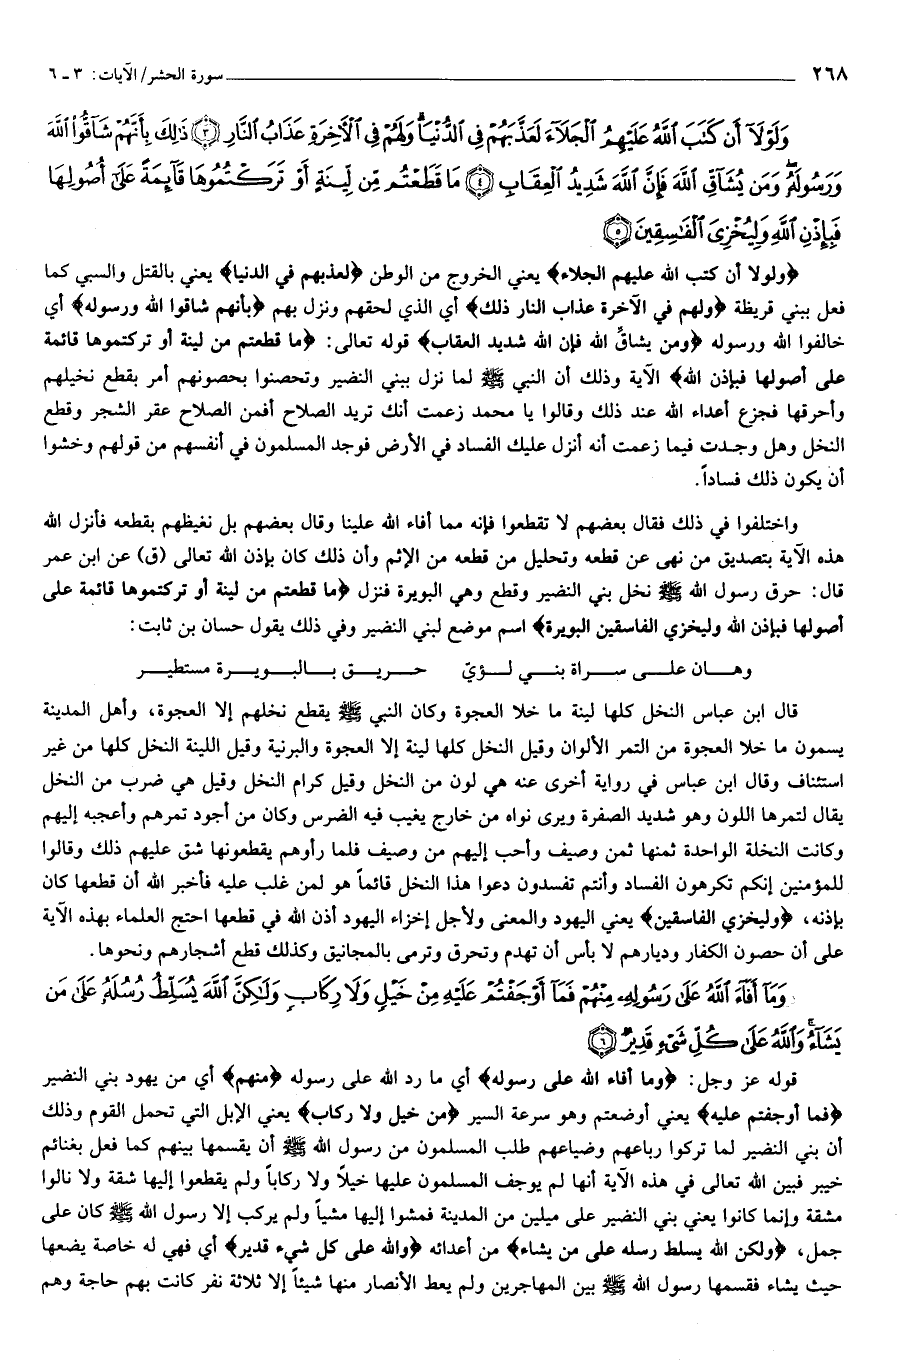 ٢٦٨ سورة الحشر/ الآيات: ٣ ـ ٦
وَلَوْلَآ أَن كَتَبَ ٱللَّهُ عَلَيْهِمُ ٱلْجَلَآءَ لَعَذَّبَهُمْ فِى ٱلدُّنْيَا ۖ وَلَهُمْ فِى ٱلْأَخِرَةِ عَذَابُ ٱلنَّارِ ﴿٣﴾ ذَٰلِكَ بِأَنَّهُمْ شَآقُّوا۟ ٱللَّهَ
وَرَسُولَهُۥ ۖ وَمَن يُشَآقِّ ٱللَّهَ فَإِنَّ ٱللَّهَ شَدِيدُ ٱلْعِقَابِ ﴿٤﴾ مَا قَطَعْتُم مِّن لِّينَةٍ أَوْ تَرَكْتُمُوهَا قَآئِمَةً عَلَىٰٓ أُصُولِهَا
فَبِإِذْنِ ٱللَّهِ وَلِيُخْزِىَ ٱلْفَٰسِقِينَ ﴿٥﴾
﴿ولولا أن كتب الله عليهم الجلاء﴾ يعني الخروج من الوطن ﴿لعذبهم في الدنيا﴾ يعني بالقتل والسبي كما
فعل ببني قريظة ﴿ولهم في الآخرة عذاب النار ذلك﴾ أي الذي لحقهم ونزل بهم ﴿بأنهم شاقوا الله ورسوله﴾ أي
خالفوا الله ورسوله ﴿ومن يشاقِّ الله فإن الله شديد العقاب﴾ قوله تعالى: ﴿ما قطعتم من لينة أو تركتموها قائمة
على أصولها فبإذن الله﴾ الآية وذلك أن النبي ﷺ لما نزل ببني النضير وتحصنوا بحصونهم أمر بقطع نخيلهم
وأحرقها فجزع أعداء الله عند ذلك وقالوا يا محمد زعمت أنك تريد الصلاح أفمن الصلاح عقر الشجر وقطع
النخل وهل وجدت فيما زعمت أنه أنزل عليك الفساد في الأرض فوجد المسلمون في أنفسهم من قولهم وخشوا
أن يكون ذلك فساداً.
واختلفوا في ذلك فقال بعضهم لا تقطعوا فإنه مما أفاء الله علينا وقال بعضهم بل نغيظهم بقطعه فأنزل الله
هذه الآية بتصديق من نهى عن قطعه وتحليل من قطعه من الإثم وأن ذلك كان بإذن الله تعالى (ق) عن ابن عمر
قال: حرق رسول الله ﷺ نخل بني النضير وقطع وهي البويرة فنزل ﴿ما قطعتم من لينة أو تركتموها قائمة على
أصولها فبإذن الله وليخزي الفاسقين البويرة﴾ اسم موضع لبني النضير وفي ذلك يقول حسان بن ثابت:
وهـان علـى سـراة بنـي لـؤيّ حـريـق بـالبـويـرة مستطيـر
قال ابن عباس النخل كلها لينة ما خلا العجوة وكان النبي ﷺ يقطع نخلهم إلا العجوة، وأهل المدينة
يسمون ما خلا العجوة من التمر الألوان وقيل النخل كلها لينة إلا العجوة والبرنية وقيل اللينة النخل كلها من غير
استثناف وقال ابن عباس في رواية أخرى عنه هي لون من النخل وقيل كرام النخل وقيل هي ضرب من النخل
يقال لتمرها اللون وهو شديد الصفرة ويرى نواه من خارج يغيب فيه الضرس وكان من أجود تمرهم وأعجبه إليهم
وكانت النخلة الواحدة ثمنها ثمن وصيف وأحب إليهم من وصيف فلما رأوهم يقطعونها شق عليهم ذلك وقالوا
للمؤمنين إنكم تكرهون الفساد وأنتم تفسدون دعوا هذا النخل قائماً هو لمن غلب عليه فأخبر الله أن قطعها كان
بإذنه، ﴿وليخزي الفاسقين﴾ يعني اليهود والمعنى ولأجل إخزاء اليهود أذن الله في قطعها احتج العلماء بهذه الآية
على أن حصون الكفار وديارهم لا بأس أن تهدم وتحرق وترمى بالمجانيق وكذلك قطع أشجارهم ونحوها.
وَمَآ أَفَآءَ ٱللَّهُ عَلَىٰ رَسُولِهِۦ مِنْهُمْ فَمَآ أَوْجَفْتُمْ عَلَيْهِ مِنْ خَيْلٍ وَلَا رِكَابٍ وَلَٰكِنَّ ٱللَّهَ يُسَلِّطُ رُسُلَهُۥ عَلَىٰ مَن
يَشَآءُ ۚ وَٱللَّهُ عَلَىٰ كُلِّ شَىْءٍ قَدِيرٌ ﴿٦﴾
قوله عز وجل: ﴿وما أفاء الله على رسوله﴾ أي ما رد الله على رسوله ﴿منهم﴾ أي من يهود بني النضير
﴿فما أوجفتم عليه﴾ يعني أوضعتم وهو سرعة السير ﴿من خيل ولا ركاب﴾ يعني الإبل التي تحمل القوم وذلك
أن بني النضير لما تركوا رباعهم وضياعهم طلب المسلمون من رسول الله ﷺ أن يقسمها بينهم كما فعل بغنائم
خيبر فبين الله تعالى في هذه الآية أنها لم يوجف المسلمون عليها خيلاً ولا ركاباً ولم يقطعوا إليها شقة ولا نالوا
مشقة وإنما كانوا يعني بني النضير على ميلين من المدينة فمشوا إليها مشياً ولم يركب إلا رسول الله ﷺ كان على
جمل، ﴿ولكن الله يسلط رسله على من يشاء﴾ من أعدائه ﴿والله على كل شيء قدير﴾ أي فهي له خاصة يضعها
حيث يشاء فقسمها رسول الله ﷺ بين المهاجرين ولم يعط الأنصار منها شيئاً إلا ثلاثة نفر كانت بهم حاجة وهم